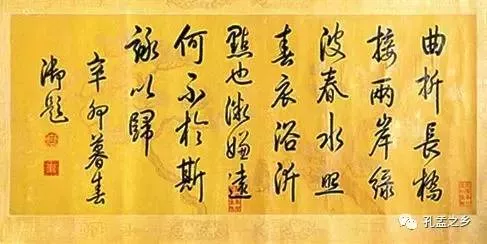 曲折長橋
接兩岸綠
波春水照
春衣浴沂
點也微嫌遠
何不於斯
詠以歸
辛卯暮春
御題
孔孟之乡